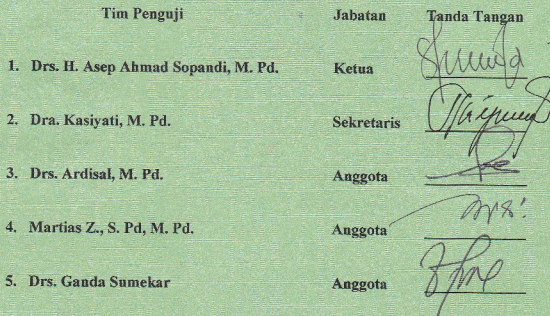 Tim Penguji Jabatan Tanda Tangan
1. Drs. H. Asep Ahmad Sopandi, M. Pd. Ketua
2. Dra. Kasiyati, M. Pd. Sekretaris
3. Drs. Ardisal, M. Pd. Anggota
4. Martias Z., S. Pd, M. Pd. Anggota
5. Drs. Ganda Sumekar Anggota